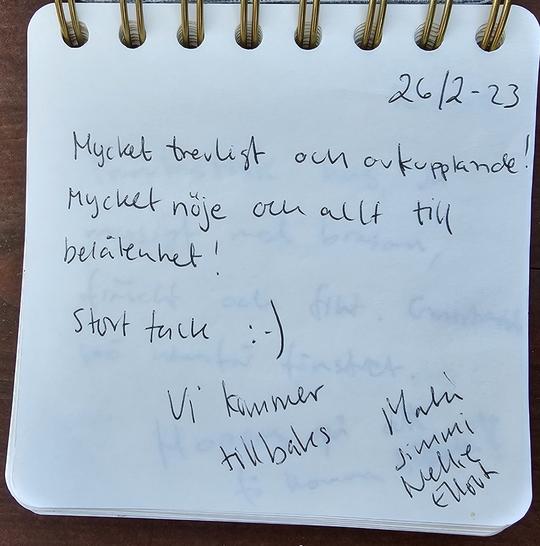 26/2-23
Mycket trevligt och avkopplande!
Mycket nöje och allt till
belåtenhet!
Stort tack :-)
Vi kommer
tillbaks
Malin
Jimmi
Nellie